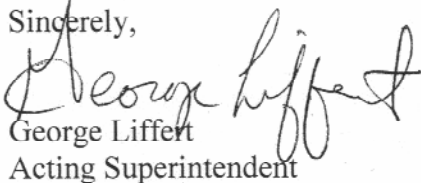 Sincerely,
George Liffert
George Liffert
Acting Superintendent